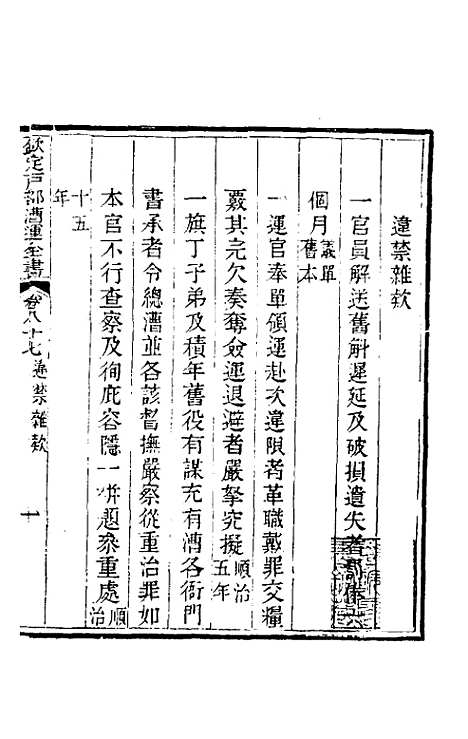 違禁雜欵
一官員解送舊斛遲延及破損遺失者罰俸六
個月舊本議單
一運官奉單領運赴次違限者革職戴罪交糧
覈其完欠奏奪僉運退避者嚴拏究擬順治五年
一旗丁子弟及積年舊役有謀充有漕各衙門
書承者令總漕並各該督撫嚴察從重治罪如
本官不行查察及徇庇容隱一併題叅重處順治
十五年
欽定戶部漕運全書
卷八十七 違禁雜欵 一